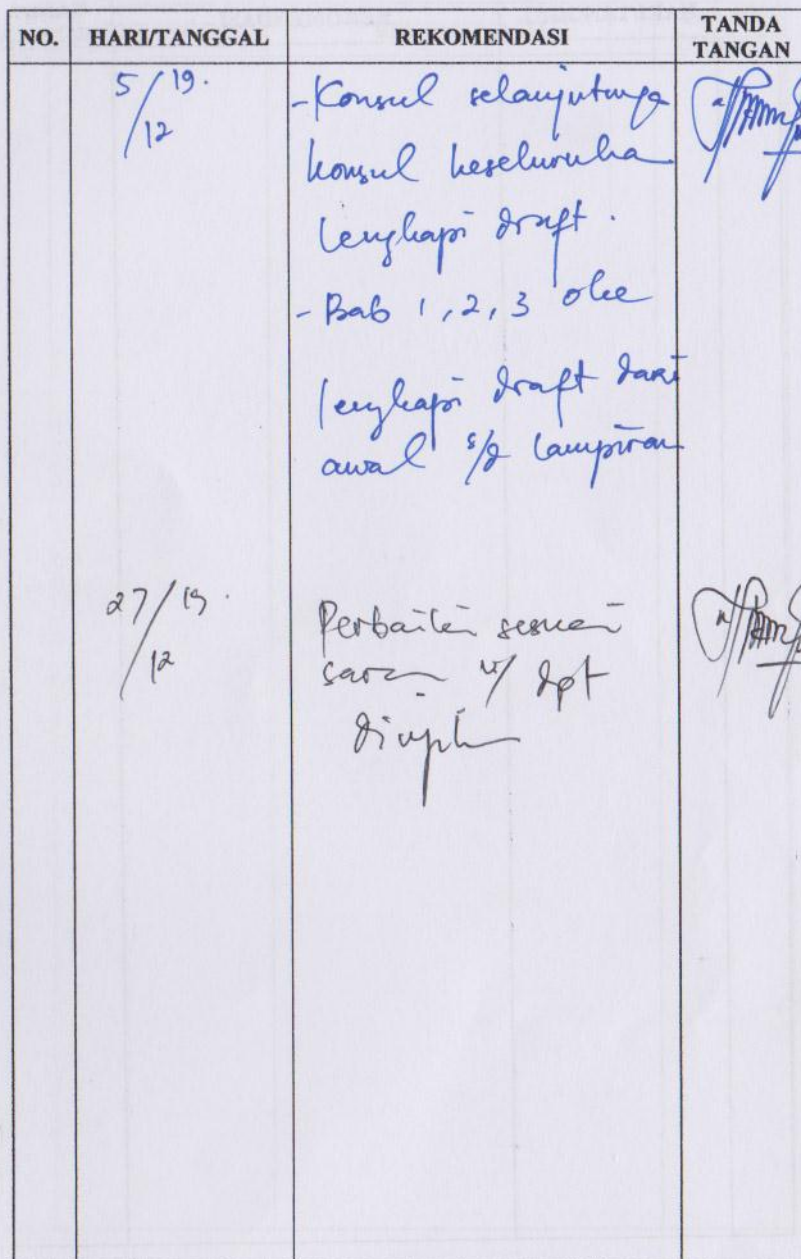 NO. HARI/TANGGAL REKOMENDASI TANDA TANGAN
5/12 19.
- Konsul selanjutnya
konsul keseluruha
lengkapi draft.
- Bab 1, 2, 3 oke
lengkapi draft dari
awal s/d lampiran
27/12 19.
Perbaiki sesuai
saran u/ dpt
diujikan